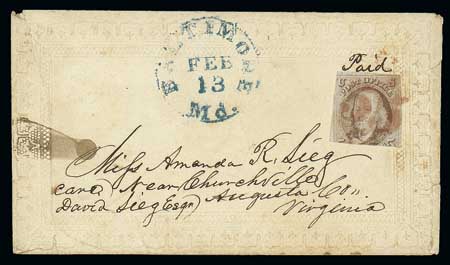 BALTIMORE
FEB
13
Md.
Paid
POST OFFICE
Miss Amanda R. Sieg
care Near Churchville
David Sieg Esqr. Augusta Co.,
Virginia